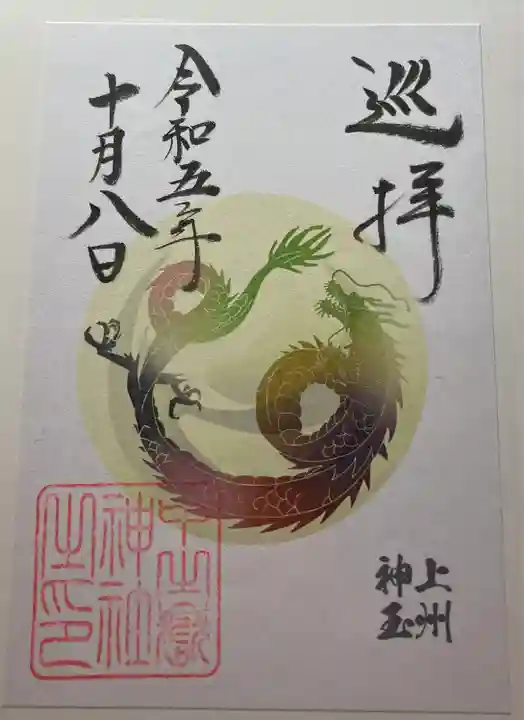 巡拝
上州
神玉
令和五年
十月八日
中之嶽
神社
之印